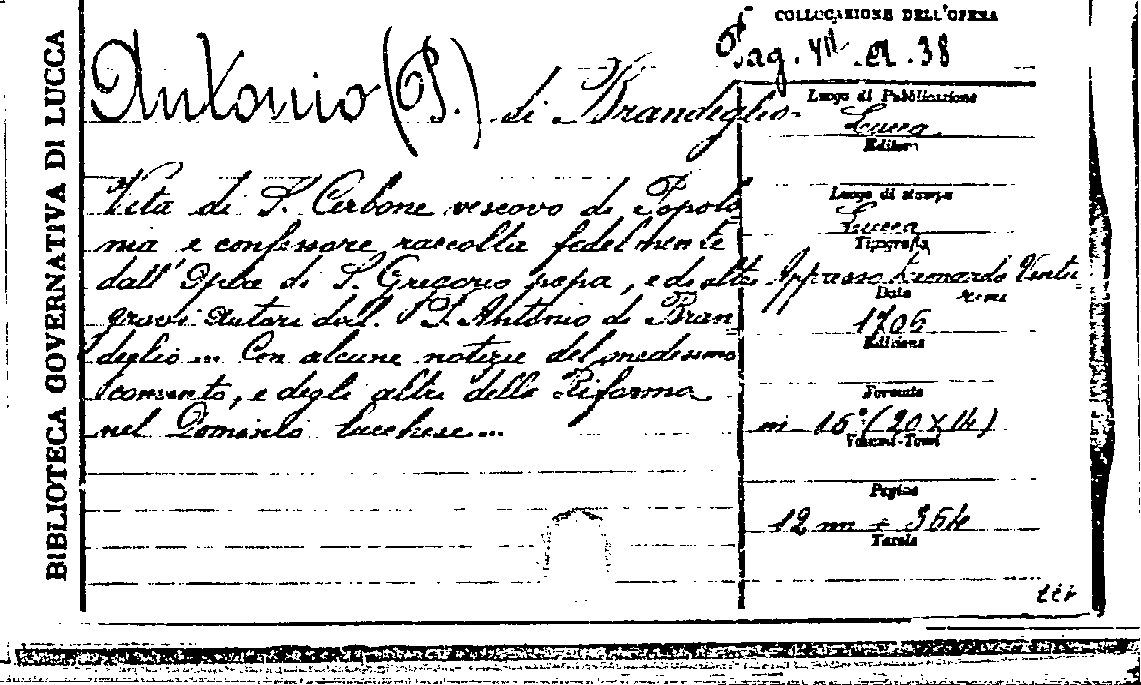 BIBLIOTECA GOVERNATIVA DI LUCCA
Antonio (P.) di Brandeglio
Vita di S. Cerbone vescovo di Popolo
nia e confessore raccolta fedelmente
dall'Opere di S. Gregorio papa, e di altri
gravi autori dal P. Antonio di Bran
deglio... Con alcune notizie del medesimo
convento, e degli altri della Riforma
nel Dominio lucchese...
COLLOCAZIONE DELL'OPERA
Pag. VII 38
Luogo di Pubblicazione
Lucca
Editore
Luogo di stampa
Lucca
Tipografia
Appresso Leonardo Ventu
rini
Data
1706
Edizione
Formato
in 16° (20 x 14)
Volumi-Tomi
Pagine
12 nn + 364
Tavole